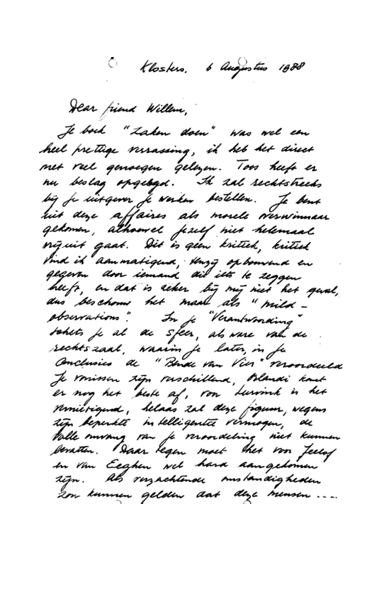 Klosters. 6 Augustus 1988
Dear friend Willem,
Je boek "Zaken doen" was wel een
heel prettige verrassing, ik heb het direct
met veel genoegen gelezen. Toos heeft er
nu beslag opgelegd. Ik zal rechtstreeks
bij je uitgever je werken bestellen. Je bent
uit deze affaires als morele overwinnaar
gekomen, alhoewel jezelf niet helemaal
vrijuit gaat. Dit is geen kritiek, kritiek
vind ik aanmatigend, tenzij opbouwend en
gegeven door iemand die iets te zeggen
heeft, en dat is zeker bij mij niet het geval,
dus beschouw het maar als "mild-
observations". In je "Verantwoording"
schets je al de sfeer, als ware van de
rechtszaal, waarin je later, in je
Conclusies de "Bende van Vier" veroordeeld
Je vonnissen zijn verschillend, komt
er nog het beste af, voor is het
vernietigend, helaas zal deze figuur, wegens
zijn beperkte intelligentie vermogen, de
volle omvang van je veroordeling niet kunnen
bevatten. Daar tegen moet het voor
en van Eeghen wel hard aangekomen
zijn. Als verzachtende omstandigheden
zou kunnen gelden dat deze mensen ....